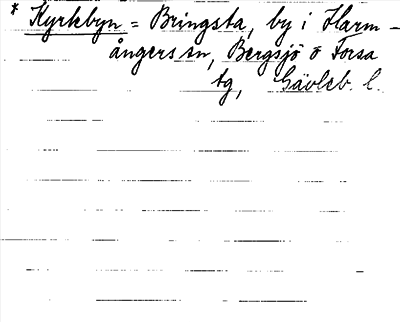 * Kyrkbyn = Bringsta, by i Harm-
ångers sn, Bergsjö o Forsa
tg, Gävleb. l.